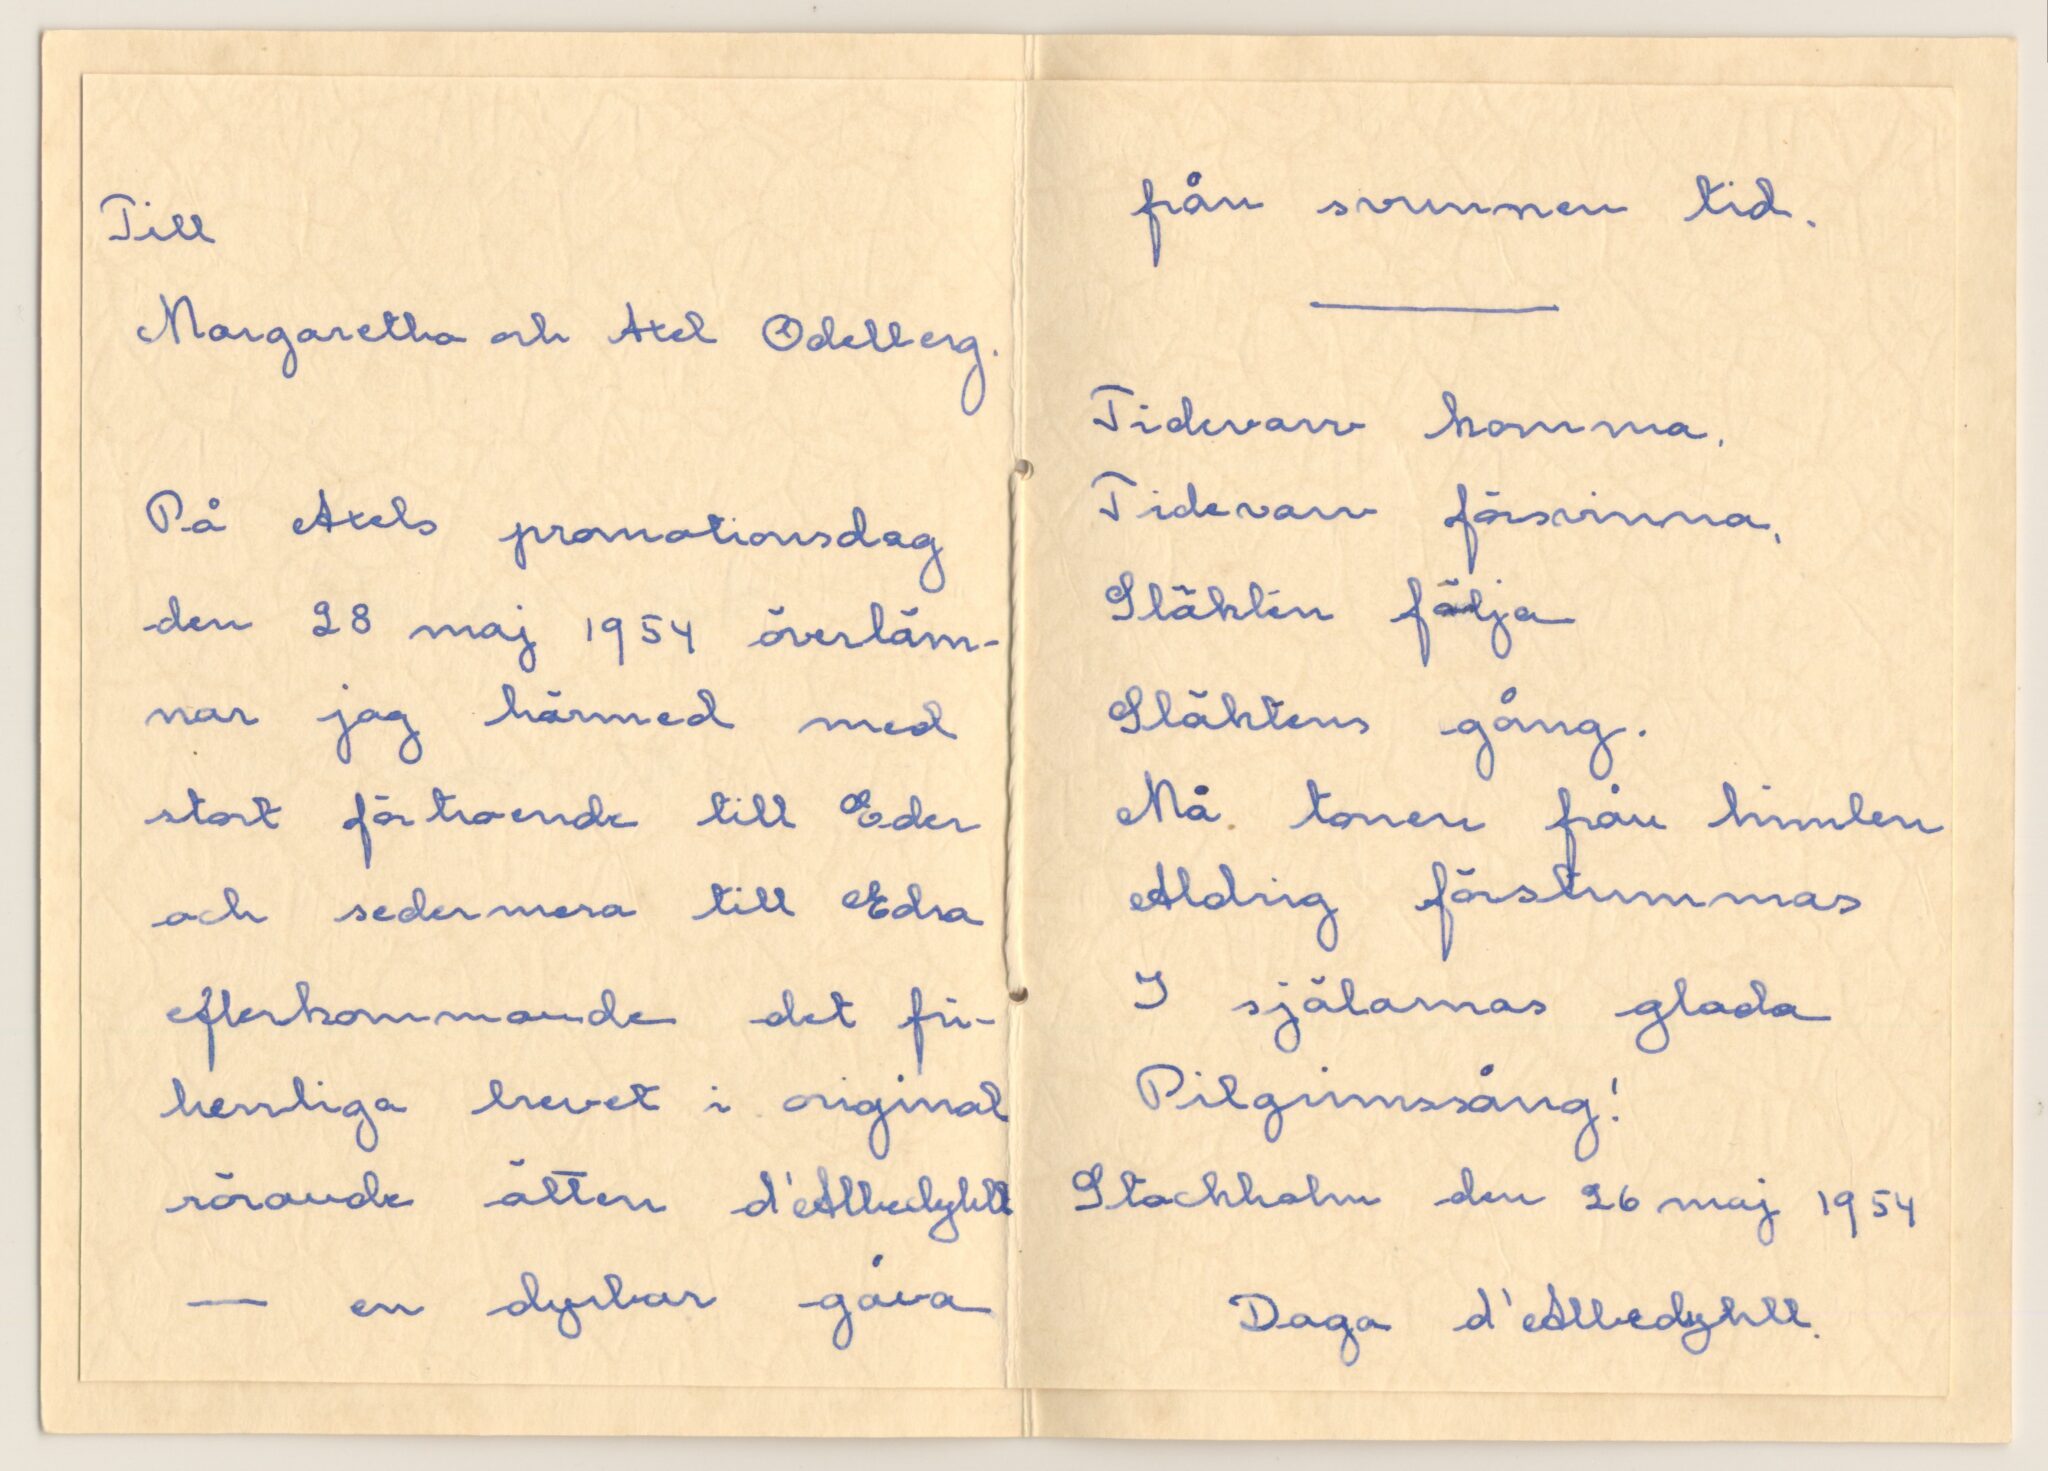 Till
Margaretha och Axel Odelberg.
På Axels promotionsdag
den 28 maj 1954 överläm-
nar jag härmed med
stort förtroende till Eder
och sedermera till Edra
efterkommande det fri-
herrliga brevet i original
rörande ätten d'Albedyhll
— en dyrbar gåva
från svunnen tid.
Tidevarv komma,
Tidevarv försvinna,
Släkten följa
Släktens gång.
Må tonen från himlen
Aldrig förstummas
I själarnas glada
Pilgrimssång!
Stockholm den 26 maj 1954
Daga d'Albedyhll.